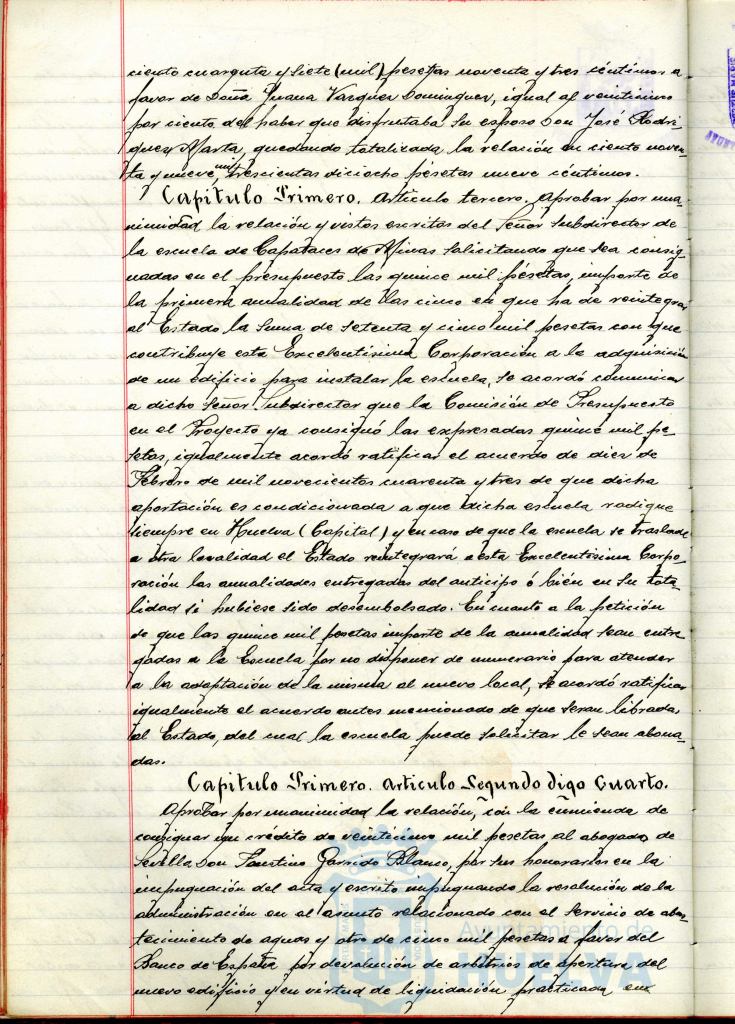 ciento cuarenta y siete (mil) pesetas noventa y tres céntimos a
favor de Doña Juana Vazquez Dominguez, igual al veinticinco
por ciento del haber que disfrutaba su esposo Don José Rodri-
guez Marta, quedando totalizada la relación en ciento noven-
ta y nueve mil trescientas dieciocho pesetas nueve céntimos.
Capítulo Primero. Artículo tercero. Aprobar por una-
nimidad la relación y vistos escritos del Señor Subdirector de
la escuela de Capataces de Minas solicitando que sea consig-
nadas en el presupuesto las quince mil pesetas, importe de
la primera anualidad de las cinco en que ha de reintegrar
al Estado la suma de setenta y cinco mil pesetas con que
contribuye esta Excelentísima Corporación a la adquisición
de un edificio para instalar la escuela, se acordó comunicar
a dicho Señor Subdirector que la Comisión de Presupuesto
en el Proyecto ya consignó las expresadas quince mil pe-
setas, igualmente acordó ratificar el acuerdo de diez de
Febrero de mil novecientos cuarenta y tres de que dicha
aportación es condicionada a que dicha escuela radique
siempre en Huelva (Capital) y en caso de que la escuela se traslade
a otra localidad el Estado reintegrará a esta Excelentísima Corpo-
ración las anualidades entregadas del anticipo ó bién en su tota-
lidad si hubiese sido desembolsado. En cuanto a la petición
de que las quince mil pesetas importe de la anualidad sean entre
gadas a la Escuela por no disponer de numerario para atender
a la adaptación de la misma al nuevo local, se acordó ratificar
igualmente el acuerdo antes mencionado de que serán libradas
al Estado, del cual la escuela puede solicitar le sean abona-
das.
Capítulo Primero. Artículo Segundo digo Cuarto.
Aprobar por unanimidad la relación, con la enmienda de
consignar un crédito de veinticinco mil pesetas al abogado de
Sevilla Don Faustino Garrido Blanco, por sus honorarios en la
impugnación del acta y escrito impugnando la resolución de la
administración en el asunto relacionado con el servicio de abas-
tecimiento de aguas y otro de cinco mil pesetas a favor del
Banco de España por devolución de arbitrios de apertura del
nuevo edificio y en virtud de liquidación practicada en
Ayuntamiento de
HUELVA